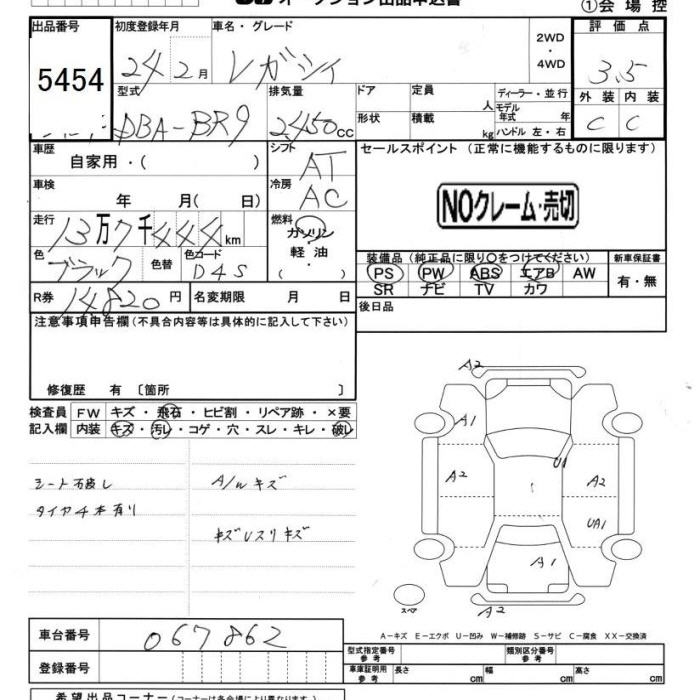 オークション出品申込書
①会場控
出品番号 5454
初度登録年月 24年2月
車名・グレード レガシィ
2WD・4WD
評価点 3.5
外装 C 内装 C
型式 DBA-BR9
排気量 2450cc
ドア
形状
定員 人
積載 kg
ディーラー・並行
モデル年式 年
ハンドル 左・右
車歴 自家用・( )
シフト AT
セールスポイント(正常に機能するものに限ります)
車検 年 月( 日)
冷房 AC
NOクレーム・売切
走行 13万7千444km
燃料 ガソリン・軽油・( )
色 ブラック 色替 色コード D4S
装備品(純正品に限り○をつけてください)
PS PW ABS エアB AW
SR ナビ TV カワ
新車保証書 有・無
R券 14820円
名変期限 月 日
後日品
注意事項申告欄(不具合内容等は具体的に記入して下さい)
修復歴 有 〔箇所 〕
検査員記入欄
FW キズ・飛石・ヒビ割・リペア跡・×要
内装 キズ・汚レ・コゲ・穴・スレ・キレ・破レ
シート破レ
タイヤ4本有り
A/Wキズ
キズUスリキズ
A2
A1
A2
U1
A2
UA1
A1
A2
スペア
A-キズ E-エクボ U-凹み W-補修跡 S-サビ C-腐食 XX-交換済
車台番号 067862
登録番号
型式指定番号 参考
類別区分番号 参考
車庫証明用 参考 長さ cm 幅 cm 高さ cm
希望出品コーナー(コーナーは各会場により異なります)